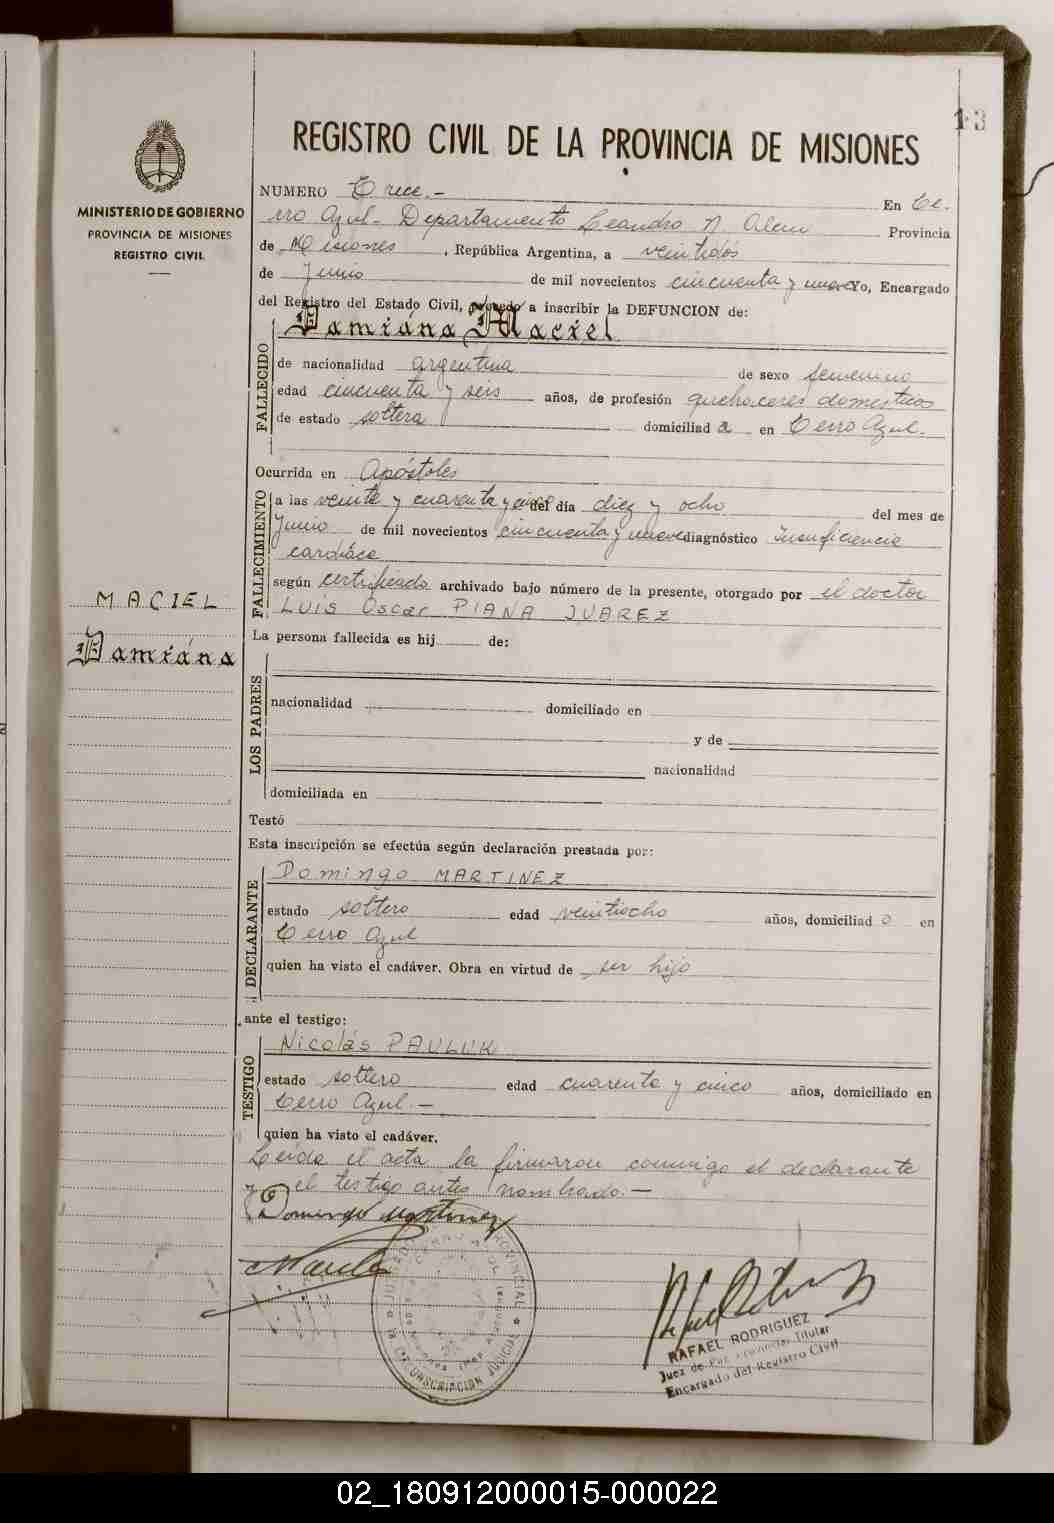 13
REGISTRO CIVIL DE LA PROVINCIA DE MISIONES
MINISTERIO DE GOBIERNO
PROVINCIA DE MISIONES
REGISTRO CIVIL
NUMERO Trece.- En Ce-
rro Azul- Departamento Leandro N. Alem Provincia
de Misiones, República Argentina, a veintidós
de Junio de mil novecientos cincuenta y nueve Yo, Encargado
del Registro del Estado Civil, procedo a inscribir la DEFUNCION de:
Damiána Maciel
FALLECIDO
de nacionalidad argentina de sexo femenino
edad cincuenta y seis años, de profesión quehaceres domesticos
de estado soltera domiciliad a en Cerro Azul.-
Ocurrida en Apóstoles
FALLECIMIENTO
a las veinte y cuarenta y cinco del día diez y ocho del mes de
Junio de mil novecientos cincuenta y nueve diagnóstico Insuficiencia
cardíaca
según certificado archivado bajo número de la presente, otorgado por el doctor
LUIS Oscar PIANA JUAREZ
MACIEL
Damiána
La persona fallecida es hij de:
LOS PADRES
nacionalidad domiciliado en
y de
nacionalidad
domiciliada en
Testó
Esta inscripción se efectúa según declaración prestada por:
DECLARANTE
Domingo MARTINEZ
estado soltero edad veintiocho años, domiciliad o en
Cerro Azul
quien ha visto el cadáver. Obra en virtud de ser hijo
ante el testigo:
TESTIGO
Nicolás PAULUK
estado soltero edad cuarenta y cinco años, domiciliado en
Cerro Azul.-
quien ha visto el cadáver.
Leída el acta la firmaron conmigo el declarante
y el testigo antes nombrado.-
Domingo Martinez
RAFAEL RODRIGUEZ
Juez de Paz Titular
Encargado del Registro Civil
02_180912000015-000022